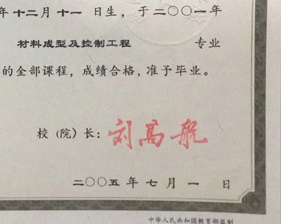 年十二月十一日生，于二〇〇一年
材料成型及控制工程 专业
的全部课程，成绩合格，准予毕业。
校（院）长：刘高航
二〇〇五年七月一日
中华人民共和国教育部监制